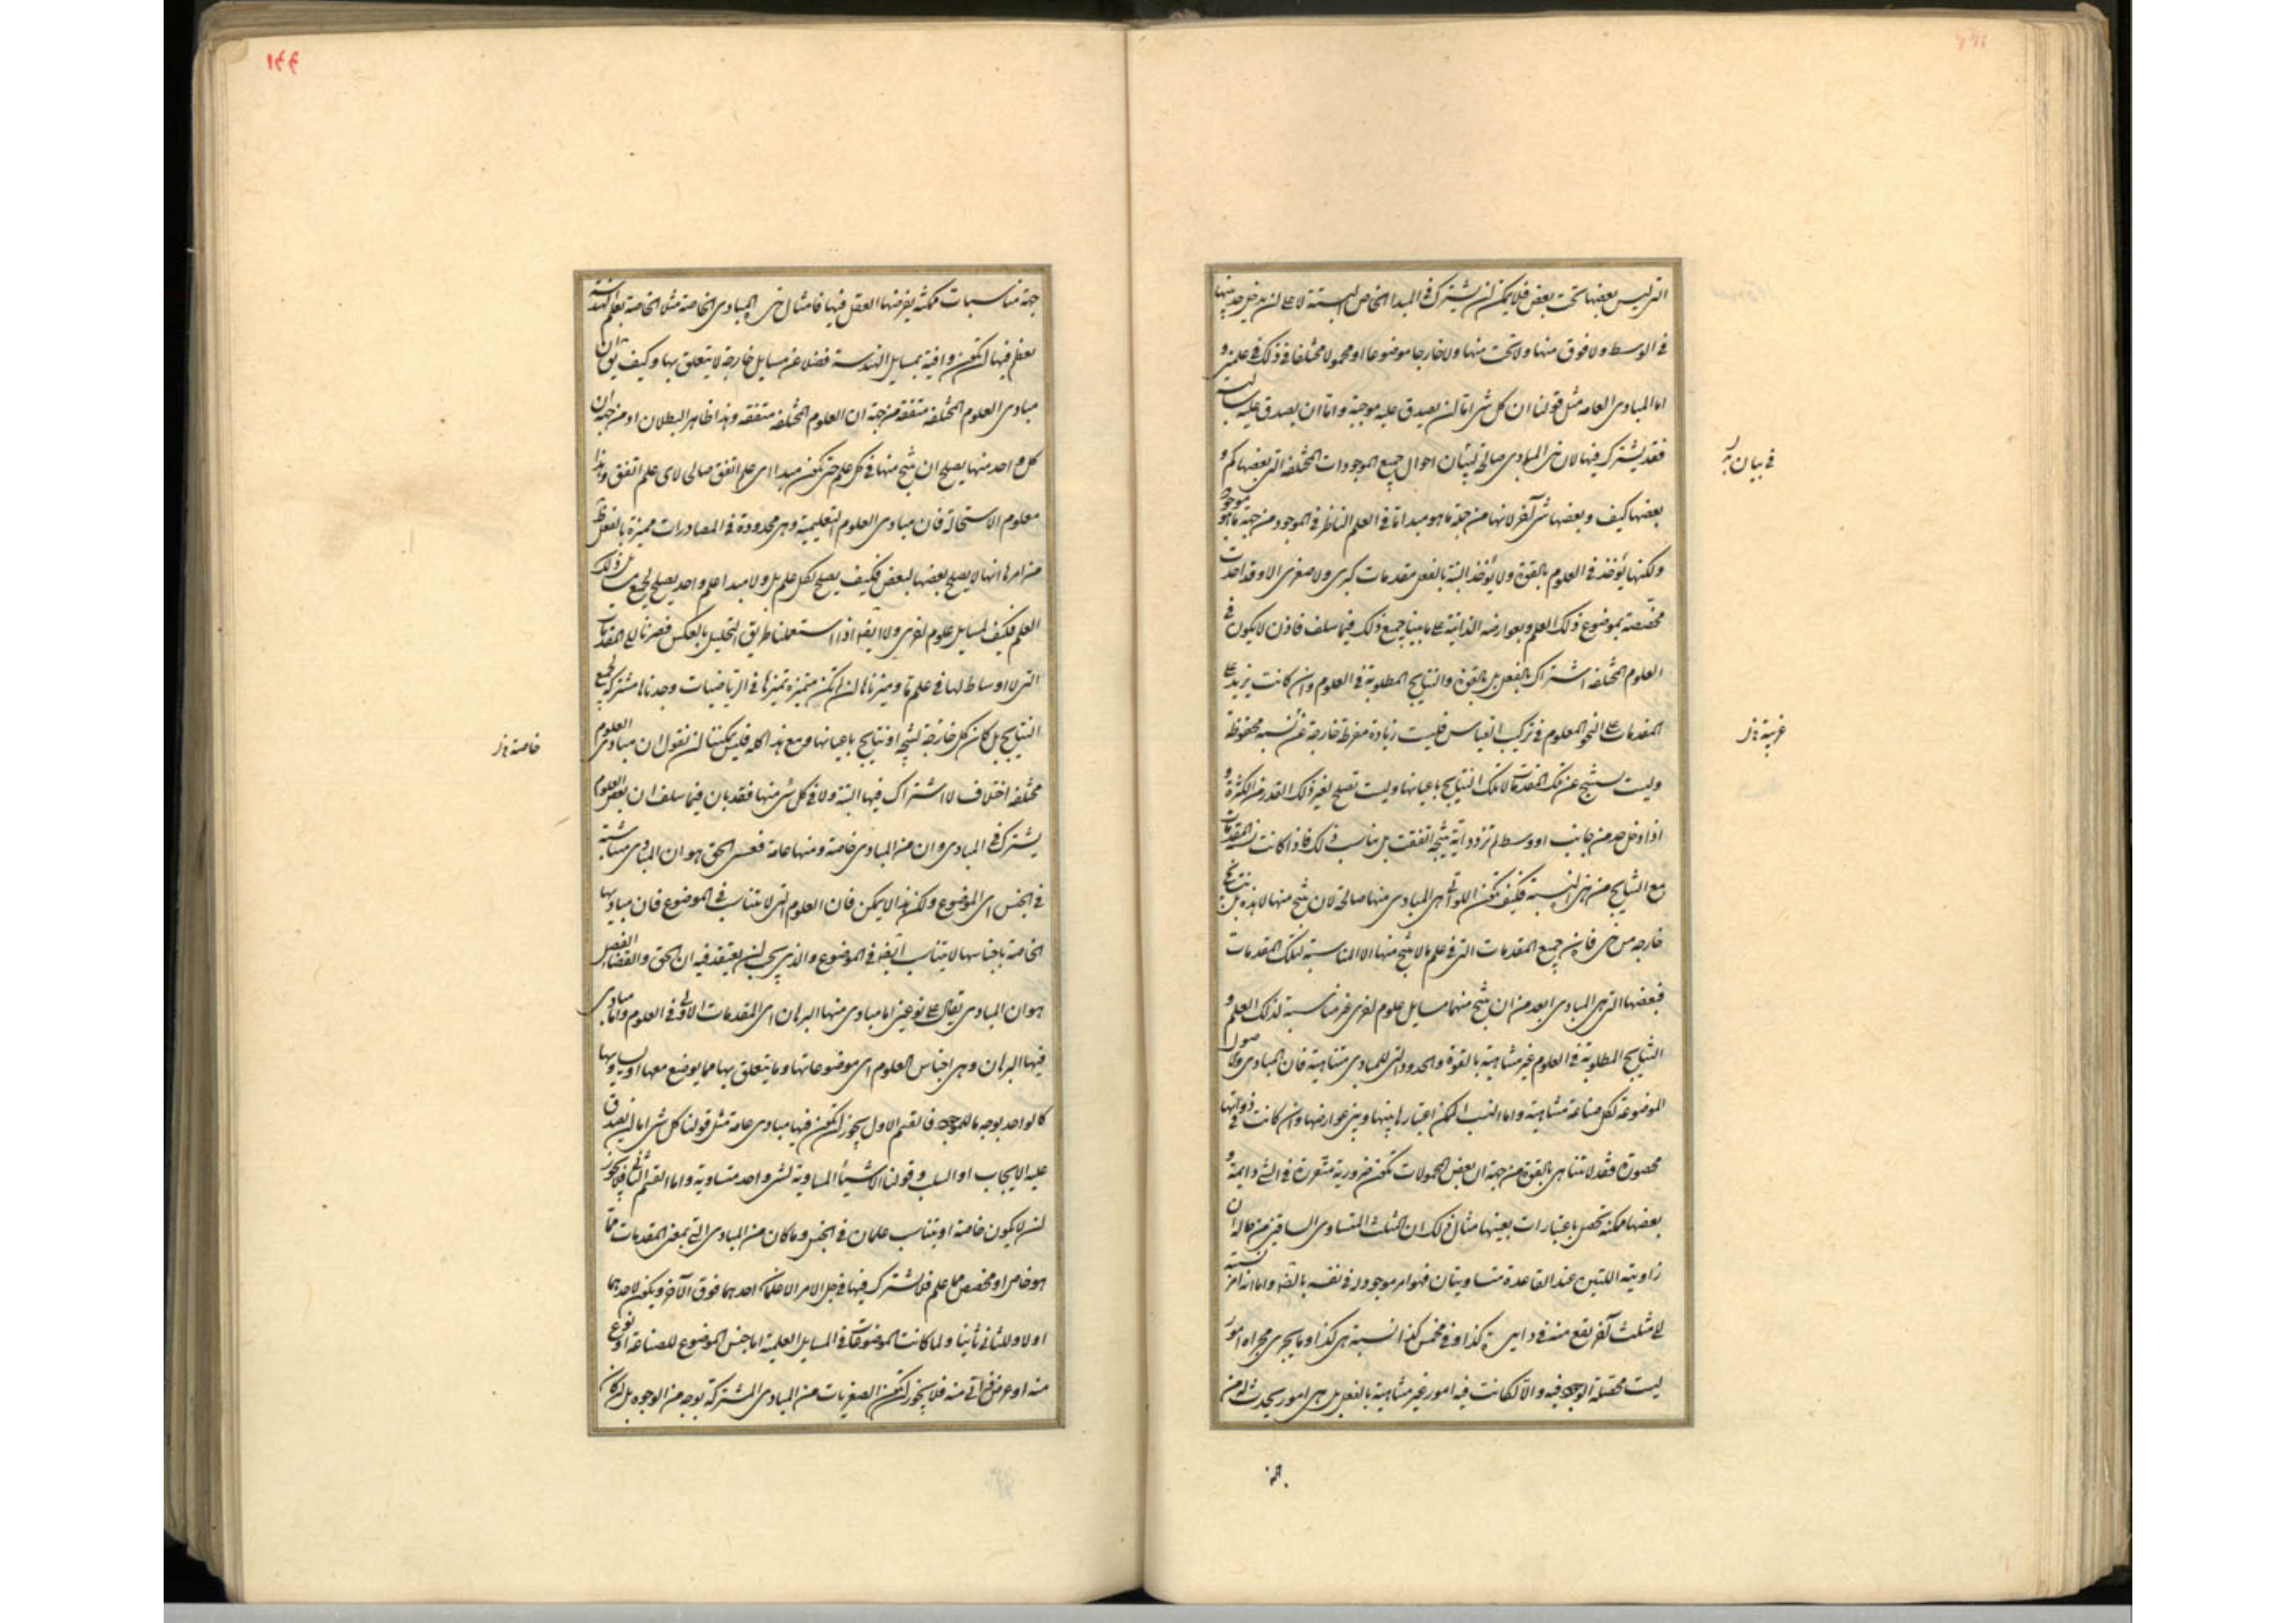 التى ليس بعضها تحت بعض فلا يمكن ان يشترك فى المبدا الخاص البتة لا على ان يدخل حد منها
فى الوسط ولا فوق منها ولا تحت منها ولا خارجا موضوعا او محمولا مختلفا فى ذلك فى علمين و
اما المبادى العامه مثل قولنا ان كل شى اما ان يصدق عليه موجبة واما ان يصدق عليه سالبته
فقد يشترك فيها لان هى المبادى صالحة لتبيان احوال جميع الموجودات المختلفه التى بعضها كم و
فى بيان
بعضها كيف وبعضها شى آخر لانها من جملة ما هو مبدا ما فى العلم الناظر فى الموجود من جهة ما هو موجود
ولكنها يؤخذ فى العلوم بالقوة ولا يؤخذ البتة بالفعل مقدمات كبرى ولا صغرى الا وقد احدث
مخصصة بموضوع ذلك العلم وبعوارضه الذاتية على ما بينا جميع ذلك فيما سلف فاذن لا يكون فى
العلوم المختلفه اشتراك بالفعل بل بالقوة والنتايج المطلوبة فى العلوم وان كانت يزيد على
المقدمات على النحو المعلوم فى تركيب القياس فليست زيادة مفرطة خارجة عن نسبه محفوظة
غريبة
وليست تنتج عن تلك المقدمات الا تلك النتايج باعيانها وليست تصلح لغير ذلك القدر من الكثرة و
اذا دخل حد من جانب او وسط لم تزدد اية نتيجة اتفقت بل مناسب ذلك فاذا كانت نسبة المقدمات
مع النتايج من هى النسبة فكيف يكون اللواتى هى المبادى منها صالحة لان ينتج منها لا هذه بل نتايج
خارجه من هى فاذن جميع المقدمات التى فى علم ما لا ينتج منها الا المناسبة لتلك المقدمات
فبعضها التى هى المبادى ابعد من ان ينتج منها مسايل علوم اخرى غير مناسبة لذلك العلم و
النتايج المطلوبة فى العلوم غير متناهية بالقوة والحدود التى للمبادى متناهية فان المبادى والاصول
الموضوعة لكل صناعة متناهية واما النسب الممكن اعتبارها بينها وبين عوارضها وان كانت فى ذواتها
محصورة فقد لا تتناهى بالقوة من جهة ان بعض المحمولات تكون ضرورية متقررة فى الشى دايمة و
بعضها ممكنة تحصل باعتبارات بعينها مثال ذلك ان المثلث المتساوى الساقين من حاله ان
زاويتيه اللتين عند القاعدة متساويتان فهو امر موجود له فى نفسه بالقوة واما انه امر نسبته
الى مثلث آخر يقع منه فى دايرة كذا وفى مخمس كذا نسبة هى كذا وما يجرى مجراه امور
ليست محصلة الوجود فيه والا لكانت فيه امور غير متناهية بالفعل بل هى امور يحدث له من
جهة مناسبات ممكنة يفرضها العقل فيها فامثال هى المبادى الخاصة مثلا الخاصة بعلم الهندسة
يعظم فيها ان تكون وافية بمسايل الهندسة فضلا عن مسايل خارجة لا يتعلق بها وكيف يق ان
مبادى العلوم المختلفه متفقه من جهة ان العلوم المختلفه متفقه وهذا ظاهر البطلان او من جهة ان
كل واحد منها يصلح ان ينتج منها فى كل علم حتى يكون مبدا اى علم اتفق صالحا لاى علم اتفق وهذا
معلوم الاستحالة فان مبادى العلوم التعليمية وهى محدودة فى المصادرات مميزة بالفعل
من امرها انها لا يصلح بعضها لبعض فكيف يصلح لكل علم بل ولا مبدا علم واحد يصلح لجميع مسايل ذلك
العلم فكيف لمسايل علوم اخرى ولا ايضا اذا استعملنا طريق التحليل بالعكس فصرنا الى المقدمات
التى لا اوساط لها فى علم ما وميزناها ان لم تكن متميزة تميزها فى الرياضيات وجدناها مشتركة لجميع
النتايج بل كان كل خارجة لنتيجة او نتايج باعيانها ومع هذا كله فليس يمكننا ان نقول ان مبادى العلوم
خاصة
مختلفه اختلاف لا اشتراك فيها البتة ولا فى كل شى منها فقد بان فيما سلف ان بعض العلوم
يشترك فى المبادى وان من المبادى خاصة ومنها عامة فعسى الحق هو ان المبادى متشابهة
فى الجنس اى الموضوع ولكن هذا لا يمكن فان العلوم التى لا يتناسب فى الموضوع فان مباديها
الخاصة باجناسها لا يتناسب ايضا فى الموضوع والذى يجب ان يعتقد فيه ان الحق والقضاء الفصل
هو ان المبادى يقال على نوعين اما مبادى منها البرهان اى المقدمات الاولى فى العلوم واما مبادى
فيها البرهان وهى اجناس العلوم اى موضوعاتها وما يتعلق بها مما يوضع معها او ينسب اليها
كالواحد بوجه ما للموجود فالقسم الاول يجوز ان تكون فيها مبادى عامة مثل قولنا كل شى اما ان يصدق
عليه الايجاب او السلب وقولنا الاشياء المساوية لشى واحد متساوية واما القسم الثانى فلا يجوز
ان لا يكون خاصة او يتناسب علمان فى الجنس وما كان من المبادى التى بمعنى المقدمات مما
هو خاص او مخصص بعلم علم فلا يشترك فيها فى جل الامر الا علمان احدهما فوق الآخر ويكون لاحدهما
اولا وللثانى ثانيا ولما كانت الموضوعات فى المسايل العلمية اما جنس الموضوع للصناعة او نوع
منه او عرض ذاتى منه فلا يجوز ان تكون الصغريات من المبادى المشتركة بوجه من الوجوه بل ان كان